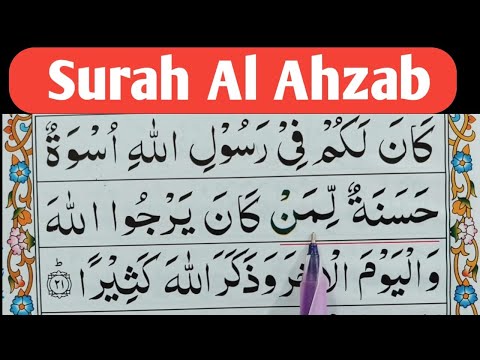 Surah Al Ahzab
كَانَ لَكُمْ فِيْ رَسُوْلِ اللّٰهِ اُسْوَةٌ
حَسَنَةٌ لِّمَنْ كَانَ يَرْجُوا اللّٰهَ
وَالْيَوْمَ الْاٰخِرَ وَذَكَرَ اللّٰهَ كَثِيْرًا ؕ ﴿۲۱﴾